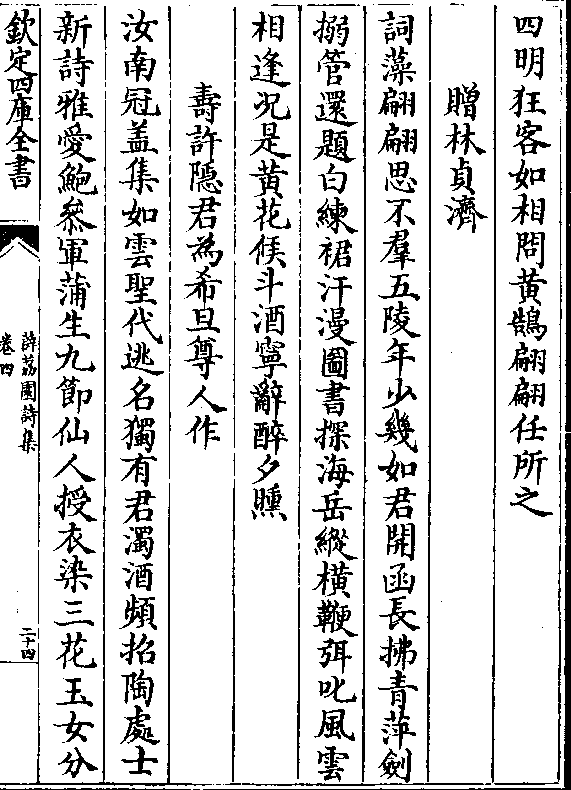 四明狂客如相問黄鵠翩翩任所之
贈林貞濟
詞藻翩翩思不羣五陵年少幾如君開函長拂青萍劍
搦管還題白練裙汗漫圖書探海岳縱横鞭弭叱風雲
相逢况是黄花候斗酒寧辭醉夕曛
壽許隱君為希旦尊人作
汝南冠盖集如雲聖代逃名獨有君濁酒頻招陶處士
新詩雅愛鮑叅軍蒲生九節仙人授衣染三花玉女分
欽定四庫全書
薜荔園詩集
卷四
二十四